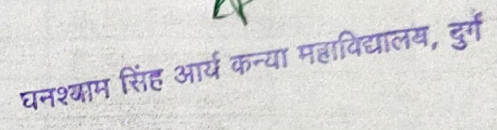 घनश्याम सिंह आर्य कन्या महाविद्यालय, दुर्ग